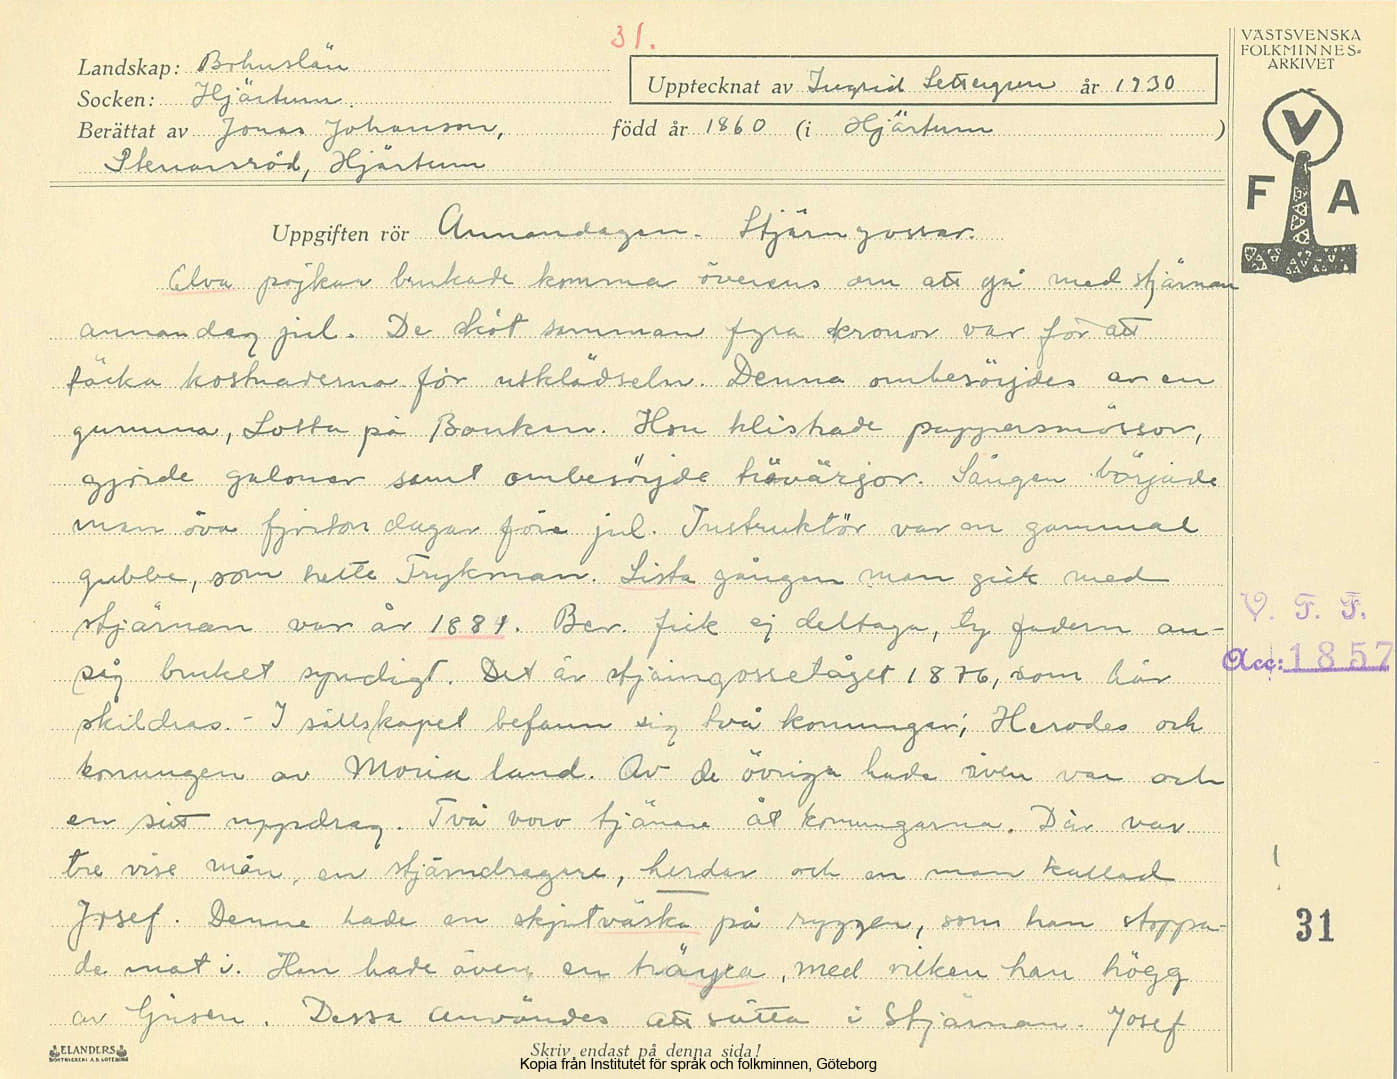 31.
VÄSTSVENSKA
FOLKMINNES=
ARKIVET
Landskap: Bohuslän
Socken: Hjärtum.
Upptecknat av Ingrid Settergren år 1930
Berättat av Jonas Johansson, född år 1860 (i Hjärtum )
Stenarsröd, Hjärtum
V
F A
Uppgiften rör Annandagen. Stjärngossar.
Elva pojkar brukade komma överens om att gå med stjärnan
annandag jul. De sköt samman fyra kronor var för att
täcka kostnaderna för utklädseln. Denna ombesörjdes av en
gumma, Lotta på Banken. Hon klistrade pappersmössor,
gjorde galoner samt ombesörjde trävärjor. Sången började
man öva fjorton dagar före jul. Instruktör var en gammal
gubbe, som hette Frykman. Sista gången man gick med
stjärnan var år 1881. Ber. fick ej deltaga, ty fadern an-
såg bruket syndigt. Det är stjärngossetåget 1876, som här
skildras. - I sällskapet befann sig två konungar; Herodes och
konungen av Moria land. Av de övriga hade även var och
en sitt uppdrag. Två voro tjänare åt konungarna. Där var
tre vise män, en stjärndragare, herdar och en man kallad
Josef. Denne hade en skjutväska på ryggen, som han stoppa-
de mat i. Han hade även en träyxa, med vilken han högg
av ljusen. Dessa användes att sätta i Stjärnan. Josef
V. F. F.
Acc: 1857
31
ELANDERS
Skriv endast på denna sida!
Kopia från Institutet för språk och folkminnen, Göteborg